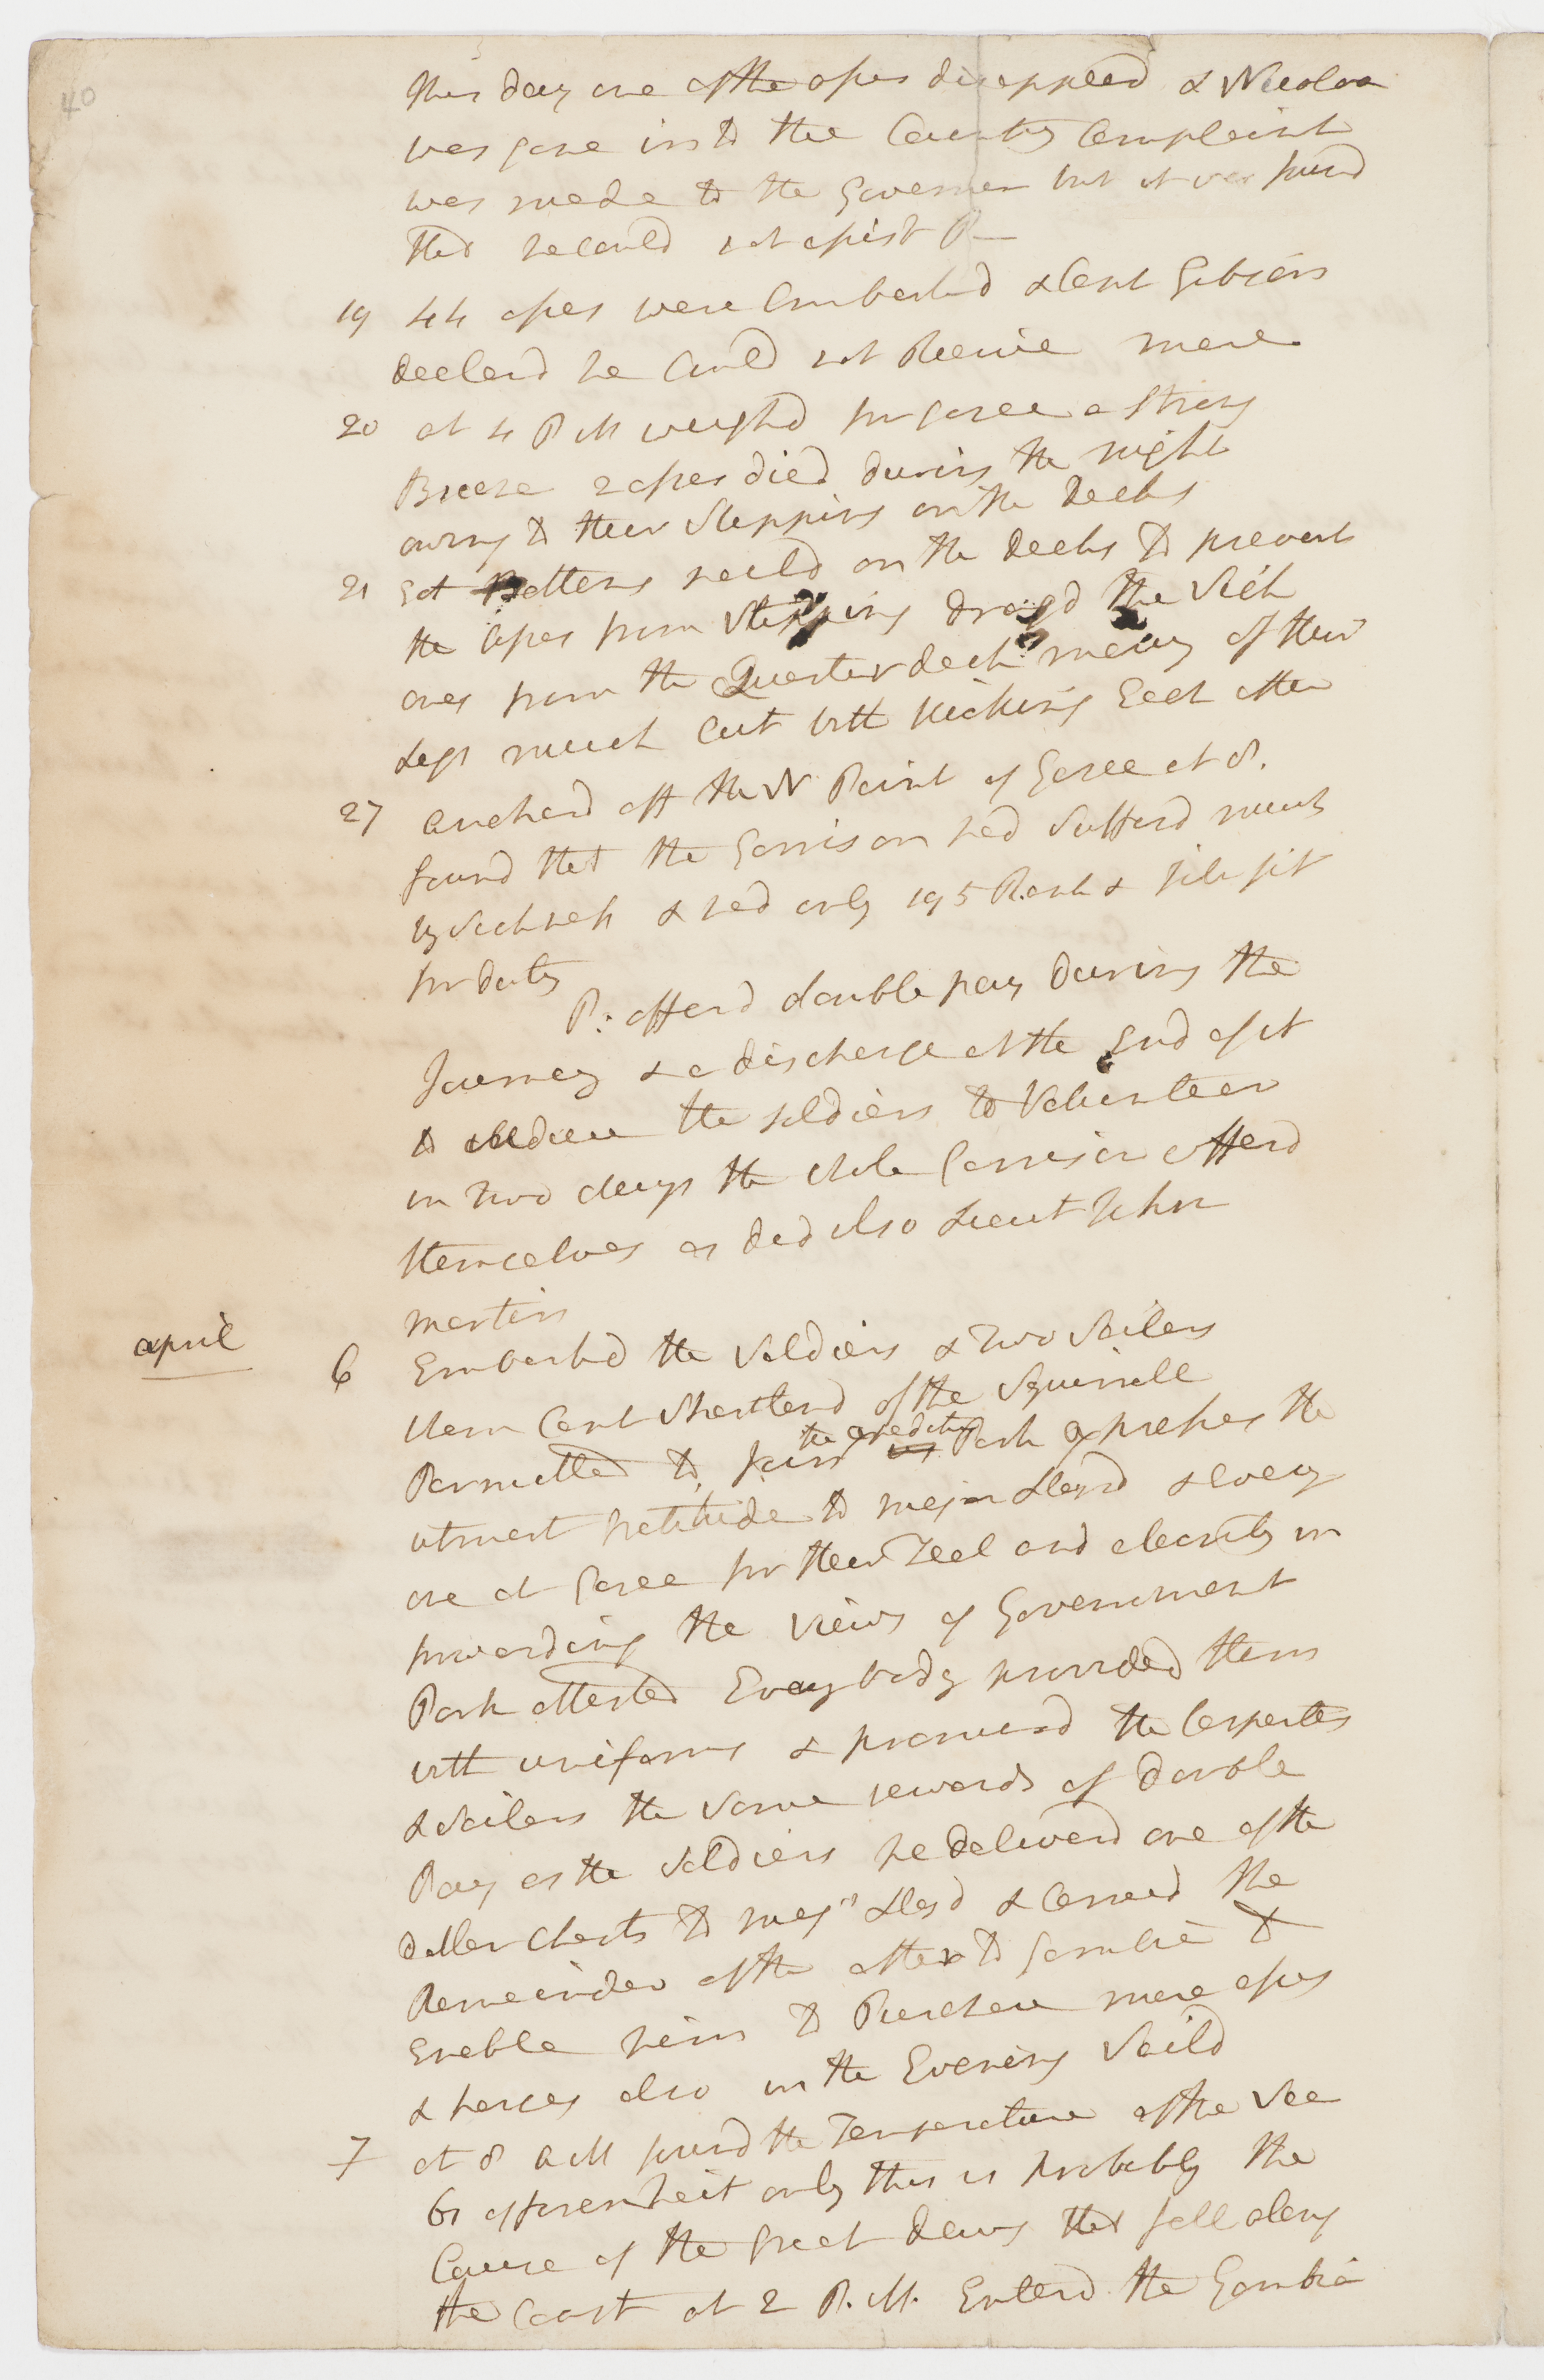 40
this day one of the asses disappeard & Nicolaa
was gone into the Country Complaint
was made to the Governor but it was found
that he could not assist P—
19 44 asses were Embarkd & Capt Gibsons
declard he Could not Receive more
20 at 4 P M weighd for Goree a Strong
Breeze 2 asses died during the night
owing to their Slipping on the decks
21 Got Battens naild on the decks to prevent
the asses from Slipping dragd the Sick
ones from the Quarter deck many of their
Legs much Cut with kicking Each other
27 anchord off the N Point of Goree at 8.
found that the Garrison had Sufferd much
by Sickness & had only 195 Rank & file fit
for duty
P: offerd double pay during the
Journey & a discharge at the End of it
to induce the soldiers to Volunteer
in Two days the whole Garrison offerd
themselves as did also Lieut John
martin
april 6 Embarkd the Soldiers & Two Sailers
whom Capt Shortland of the Squirrell
Permitted to Join the Expedition Park Expresses the
utmost gratitude to major Lloyd & Every
one at Goree for their Zeal and alacrity in
forwarding the views of Government
Park attested Every body provided them
with uniforms & promisd the Carpenters
& Sailers the Same rewards of double
Pay as the Soldiers he deliverd one of the
dollar Chests to majr Lloyd & Carried the
Remainder of the other to Gambia to
Enable him to Purchase more asses
& horses also in the Evening Saild
7 at 8 A M found the Temperature of the Sea
61 of farenheit only this is probably the
Cause of the great dews that fall along
the Coast at 2 P.M. Enterd the Gambia